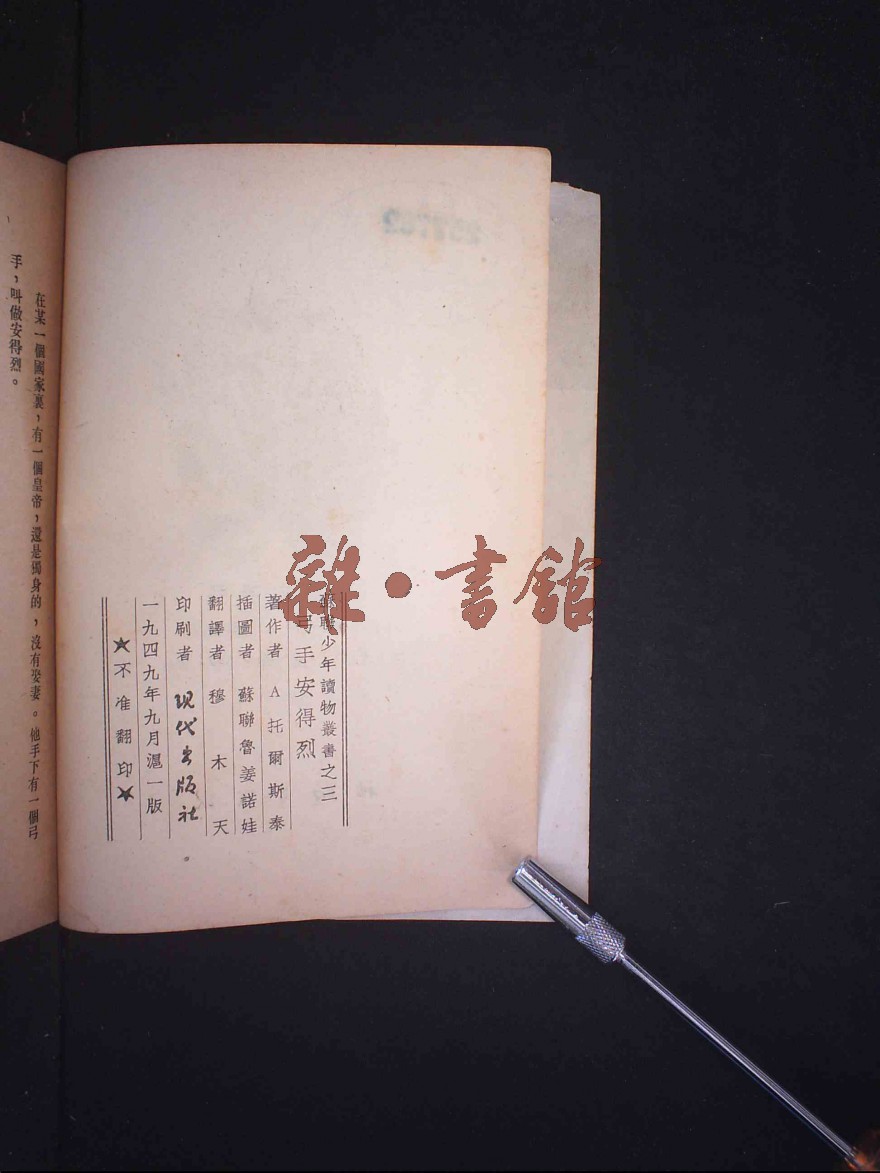 蘇聯少年讀物叢書之三
弓手安得烈
著作者 A托爾斯泰
插圖者 蘇聯魯姜諾娃
翻譯者 穆木天
印刷者 现代出版社
一九四九年九月滬一版
★不准翻印★
在某一個國家裏，有一個皇帝，還是獨身的，沒有娶妻。他手下有一個弓
手，叫做安得烈。
雜·書館